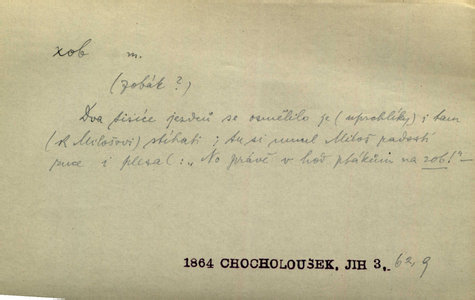 zob m.
(zobák?)
Dva tisíce jezdců se osmělilo je (uprchlíky) i tam
(k Milošovi) stíhati; tu si mnul Miloš radostí
ruce i plesal: „No právě v hod ptákům na zob!"
1864 CHOCHOLOUŠEK, JIH 3,. 62,9